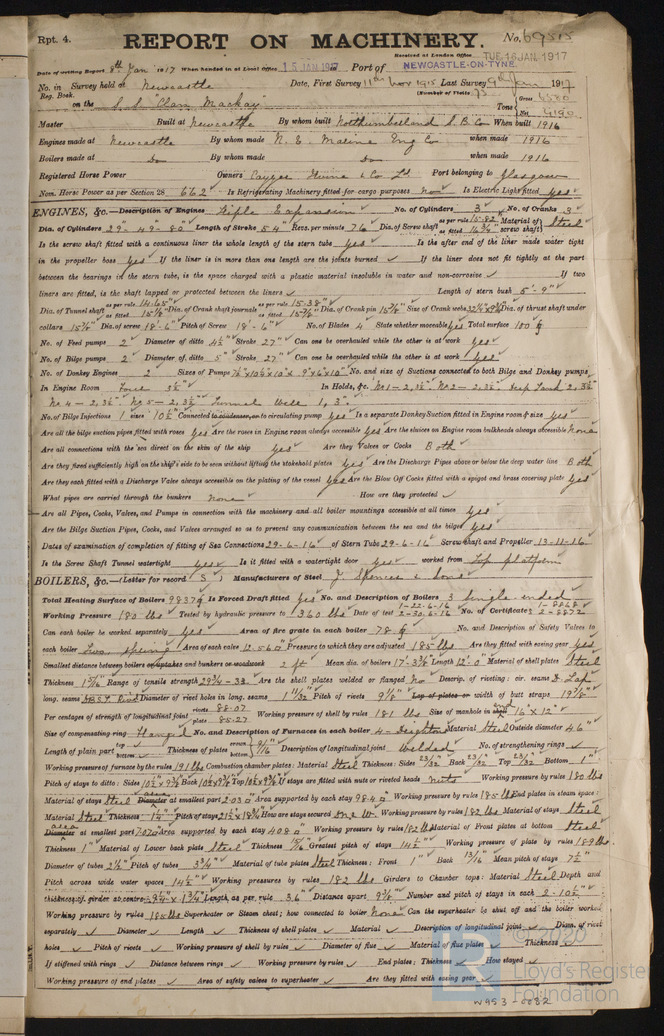 Rpt. 4.
REPORT ON MACHINERY.
No. 69515
Received at London Office TUE. 16 JAN. 1917
Date of writing Report 8th Jan 1917 When handed in at Local Office 15 JAN 1917 Port of NEWCASTLE-ON-TYNE.
No. in Survey held at Newcastle Date, First Survey 11th Nov 1915 Last Survey 9th Jan 1917
Reg. Book. (Number of Visits 75
on the S.S. "Clan Mackay" Tons Gross 6580 Net 4190
Master Built at Newcastle By whom built Northumberland S.B. Co When built 1916
Engines made at Newcastle By whom made N.E. Marine Eng Co. when made 1916
Boilers made at Do By whom made Do when made 1916
Registered Horse Power Owners Cayzer Irvine & Co Ld Port belonging to Glasgow
Nom. Horse Power as per Section 28 662 Is Refrigerating Machinery fitted for cargo purposes No Is Electric Light fitted Yes
ENGINES, &c.—Description of Engines Triple Expansion No. of Cylinders 3 No. of Cranks 3
Dia. of Cylinders 29-49-80 Length of Stroke 54" Revs. per minute 76 Dia. of Screw shaft as per rule 15.82 as fitted 16¾" Material of screw shaft Steel
Is the screw shaft fitted with a continuous liner the whole length of the stern tube yes Is the after end of the liner made water tight
in the propeller boss yes If the liner is in more than one length are the joints burned If the liner does not fit tightly at the part
between the bearings in the stern tube, is the space charged with a plastic material insoluble in water and non-corrosive If two
liners are fitted, is the shaft lapped or protected between the liners Length of stern bush 5'-9"
Dia. of Tunnel shaft as per rule 14.65" as fitted 15⅛" Dia. of Crank shaft journals as per rule 15.38" as fitted 15⅞" Dia. of Crank pin 15⅞" Size of Crank webs Dia. of thrust shaft under
collars 15⅞" Dia. of screw 18'-6" Pitch of Screw 18'-6" No. of Blades 4 State whether moveable yes Total surface 100
No. of Feed pumps 2 Diameter of ditto 4½" Stroke 27" Can one be overhauled while the other is at work yes
No. of Bilge pumps 2 Diameter of ditto 5" Stroke 27" Can one be overhauled while the other is at work yes
No. of Donkey Engines 2 Sizes of Pumps No. and size of Suctions connected to both Bilge and Donkey pumps
In Engine Room Four 3½" In Holds, &c. No 1 - 2, 3½" No 2 - 2, 3½" Deep Tank 2, 3½"
No 4 - 2, 3½" No 5 - 2, 3½" Tunnel Well 1, 3"
No. of Bilge Injections 1 sizes 10½" Connected to condenser, or to circulating pump yes Is a separate Donkey Suction fitted in Engine room & size yes
Are all the bilge suction pipes fitted with roses yes Are the roses in Engine room always accessible yes Are the sluices on Engine room bulkheads always accessible none
Are all connections with the sea direct on the skin of the ship yes Are they Valves or Cocks Both
Are they fixed sufficiently high on the ship's side to be seen without lifting the stokehold plates yes Are the Discharge Pipes above or below the deep water line Both
Are they each fitted with a Discharge Valve always accessible on the plating of the vessel yes Are the Blow Off Cocks fitted with a spigot and brass covering plate yes
What pipes are carried through the bunkers none How are they protected
Are all Pipes, Cocks, Valves, and Pumps in connection with the machinery and all boiler mountings accessible at all times yes
Are the Bilge Suction Pipes, Cocks, and Valves arranged so as to prevent any communication between the sea and the bilges yes
Dates of examination of completion of fitting of Sea Connections 29-6-16 of Stern Tube 29-6-16 Screw shaft and Propeller 13-11-16
Is the Screw Shaft Tunnel watertight yes Is it fitted with a watertight door yes worked from Top platform
BOILERS, &c.—(Letter for record S) Manufacturers of Steel J. Spencer & Sons
Total Heating Surface of Boilers 9837 Is Forced Draft fitted yes No. and Description of Boilers 3 Single-ended
Working Pressure 180 lbs Tested by hydraulic pressure to 360 lbs Date of test 1-22-6-16 2-30-6-16 No. of Certificate 1-8868 2-8872
Can each boiler be worked separately yes Area of fire grate in each boiler 78 No. and Description of Safety Valves to
each boiler Two spring Area of each valve 12.56 Pressure to which they are adjusted 185 lbs Are they fitted with easing gear yes
Smallest distance between boilers or uptakes and bunkers or woodwork 2 ft Mean dia. of boilers 17'-3⅜" Length 12'-0" Material of shell plates Steel
Thickness Range of tensile strength 29¾-33 Are the shell plates welded or flanged No Descrip. of riveting: cir. seams D. Lap
long. seams Diameter of rivet holes in long. seams 1 11/32 Pitch of rivets 9⅛" Lap of plates or width of butt straps 19⅞"
Per centages of strength of longitudinal joint rivets 88.07 plate 85.27 Working pressure of shell by rules 181 lbs Size of manhole in end 16"x12"
Size of compensating ring Flanged No. and Description of Furnaces in each boiler 4 - Deighton Material Steel Outside diameter 46"
Length of plain part top bottom Thickness of plates crown bottom 9/16 Description of longitudinal joint Welded No. of strengthening rings
Working pressure of furnace by the rules 191 lbs Combustion chamber plates: Material Steel Thickness: Sides 23/32 Back 23/32 Top 23/32 Bottom 1"
Pitch of stays to ditto: Sides 10½"x9½" Back 10½x9½" Top 10½x9½" If stays are fitted with nuts or riveted heads nuts Working pressure by rules 180 lbs
Material of stays Steel area at smallest part 2.03 Area supported by each stay 98.4 Working pressure by rules 185 lbs End plates in steam space:
Material Steel Thickness 1¼ Pitch of stays How are stays secured DN & W. Working pressure by rules 182 lbs Material of stays Steel
area at smallest part 7.07 Area supported by each stay 408 Working pressure by rules 182 lbs Material of Front plates at bottom Steel
Thickness 1" Material of Lower back plate Steel Thickness 15/16 Greatest pitch of stays 14½" Working pressure of plate by rules 189 lbs
Diameter of tubes 2½" Pitch of tubes 3¾" Material of tube plates Steel Thickness: Front 1" Back 13/16" Mean pitch of stays 7½"
Pitch across wide water spaces 14½" Working pressures by rules 182 lbs Girders to Chamber tops: Material Steel Depth and
thickness of girder at centre 9¼ x 1¾ Length as per rule 36" Distance apart 9⅞" Number and pitch of stays in each 2-10½"
Working pressure by rules 185 lbs Superheater or Steam chest; how connected to boiler None Can the superheater be shut off and the boiler worked
separately Diameter Length Thickness of shell plates Material Description of longitudinal joint Diam. of rivet
holes Pitch of rivets Working pressure of shell by rules Diameter of flue Material of flue plates Thickness
If stiffened with rings Distance between rings Working pressure by rules End plates: Thickness How stayed
Working pressure of end plates Area of safety valves to superheater Are they fitted with easing gear
© 2020
Lloyd's Register
Foundation
W953-0032